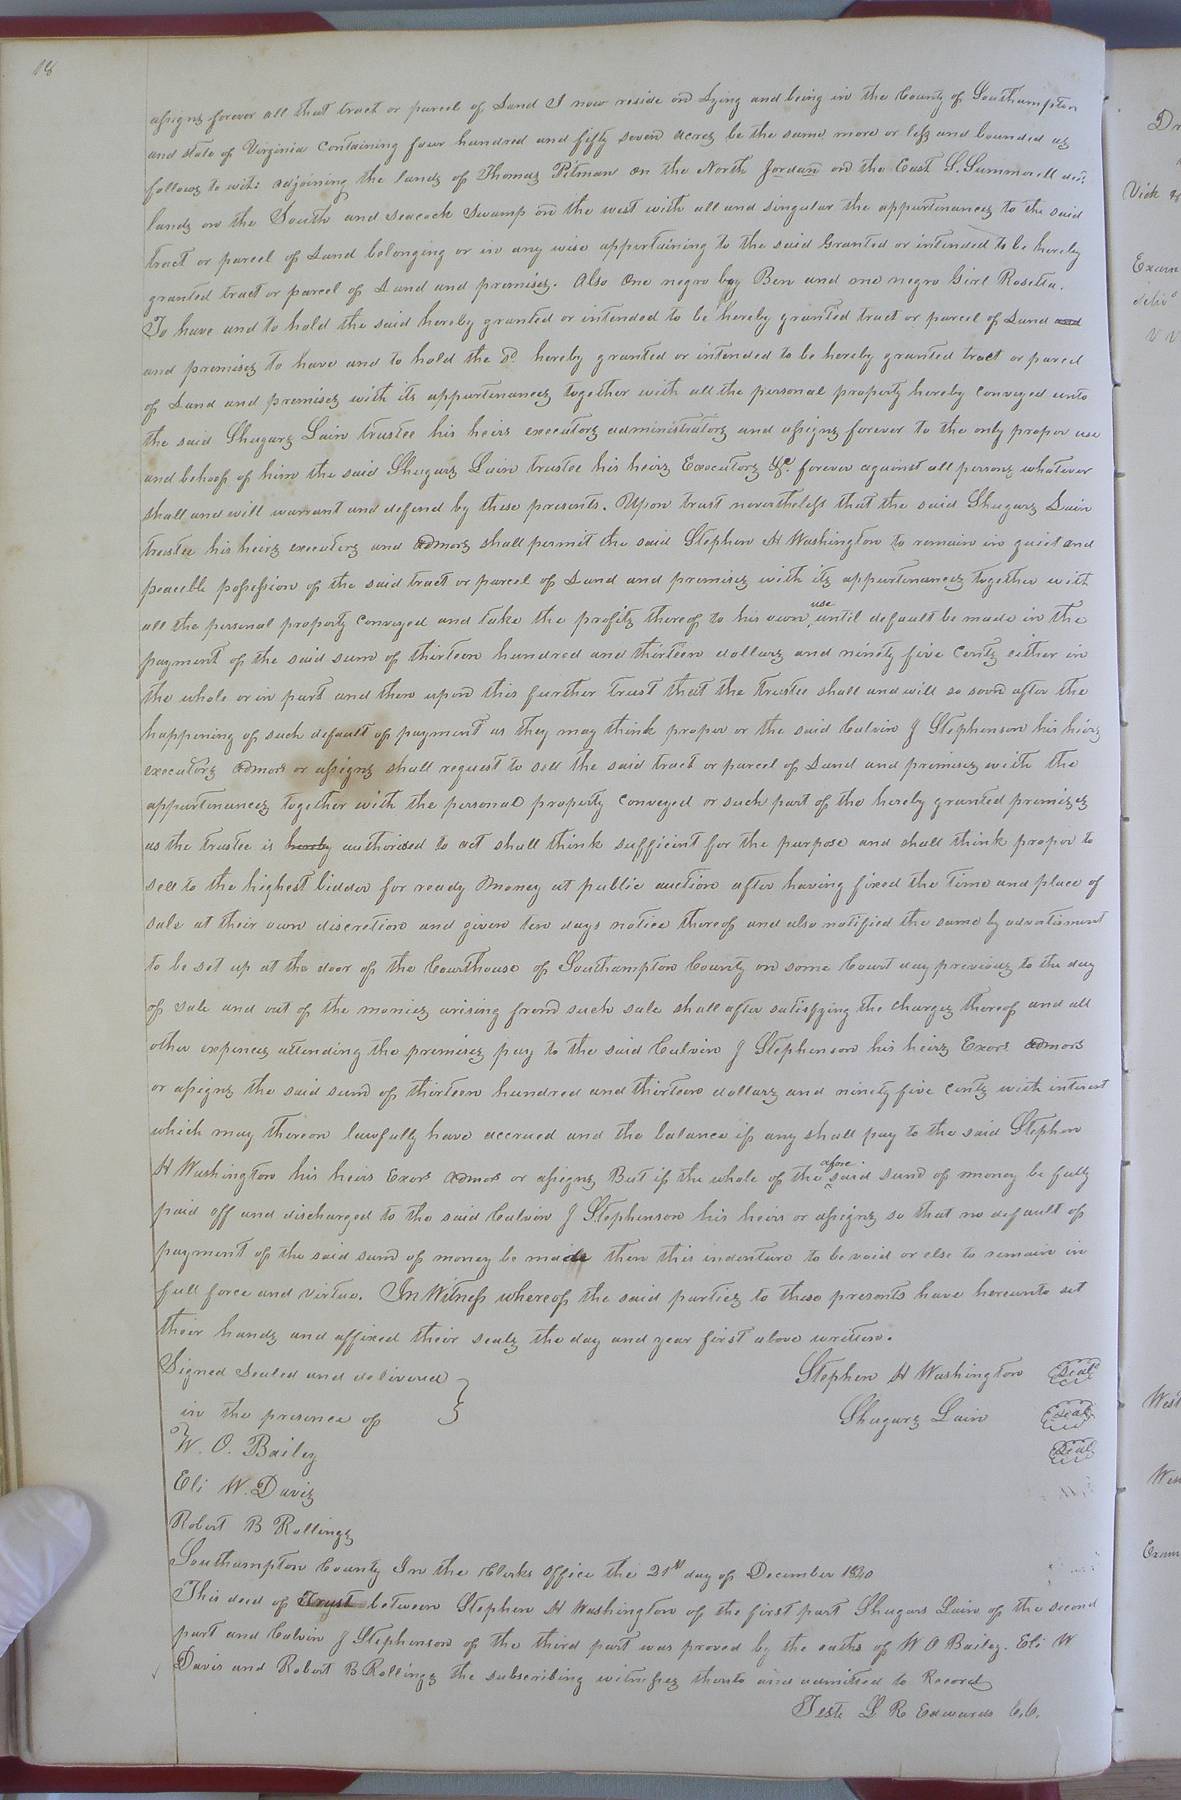 18
assigns forever all that tract or parcel of Land I now reside on Lying and being in the County of Southampton
and state of Virginia containing four hundred and fifty seven acres be the same more or less and bounded as
follows to wit: adjoining the lands of Thomas Pitman on the North Jordan on the East S. Summerell decd.
lands on the South and Seacock Swamp on the west with all and singular the appurtenances to the said
tract or parcel of Land belonging or in any wise appertaining to the said Granted or intended to be hereby
granted tract or parcel of Land and premises. Also One negro boy Ben and one negro Girl Rosetta.
To have and to hold the said hereby granted or intended to be hereby granted tract or parcel of Land and
and premises to have and to hold the sd. hereby granted or intended to be hereby granted tract or parcel
of Land and premises with its appurtenances together with all the personal property hereby conveyed unto
the said Shugars Lain trustee his heirs executors administrators and assigns forever to the only proper use
and behoof of him the said Shugars Lain trustee his heirs Executors &c. forever against all persons whatever
shall and will warrant and defend by these presents. Upon trust nevertheless that the said Shugars Lain
trustee his heirs executors and admors shall permit the said Stephen H Washington to remain in quiet and
peaceble possession of the said tract or parcel of Land and premises with its appurtenances together with
all the personal property conveyed and take the profits thereof to his own use until default be made in the
payment of the said sum of thirteen hundred and thirteen dollars and ninety five cents either in
the whole or in part and then upon this further trust that the trustee shall and will so soon after the
happening of such default of payment as they may think proper or the said Calvin J Stephenson his heirs
executors admors or assigns shall request to sell the said tract or parcel of Land and premises with the
appurtenances together with the personal property conveyed or such part of the hereby granted premises
as the trustee is hereby authorised to act shall think sufficient for the purpose and shall think proper to
sell to the highest bidder for ready money at public auction after having fixed the time and place of
sale at their own discretion and given ten days notice thereof and also notified the same by advertisment
to be set up at the door of the Courthouse of Southampton County on some Court day previous to the day
of sale and out of the monies arising from such sale shall after satisfying the charges thereof and all
other expences attending the premises pay to the said Calvin J Stephenson his heirs Exors admors
or assigns the said sum of thirteen hundred and thirteen dollars and ninety five cents with interest
which may thereon lawfully have accrued and the balance if any shall pay to the said Stephen
H Washington his heirs Exors admors or assigns But if the whole of the afore said sum of money be fully
paid off and discharged to the said Calvin J Stephenson his heirs or assigns so that no default of
payment of the said sum of money be made then this indenture to be void or else to remain in
full force and virtue. In Witness whereof the said parties to these presents have hereunto set
their hands and affixed their seals the day and year first above written.
Signed Sealed and delivered } Stephen H Washington Seal
in the presence of Shugars Lain Seal
W. O. Bailey Seal
Eli W. Davis
Robert B Rollings
Southampton County In the Clerks Office the 21st day of December 1840
This deed of Trust between Stephen H Washington of the first part Shugars Lain of the second
part and Calvin J Stephenson of the third part was proved by the oaths of W O Bailey. Eli W
Davis and Robert B Rollings the subscribing witnesses thereto and admitted to Record
Teste L R Edwards C.C.
Vick
Exam
West
Exam